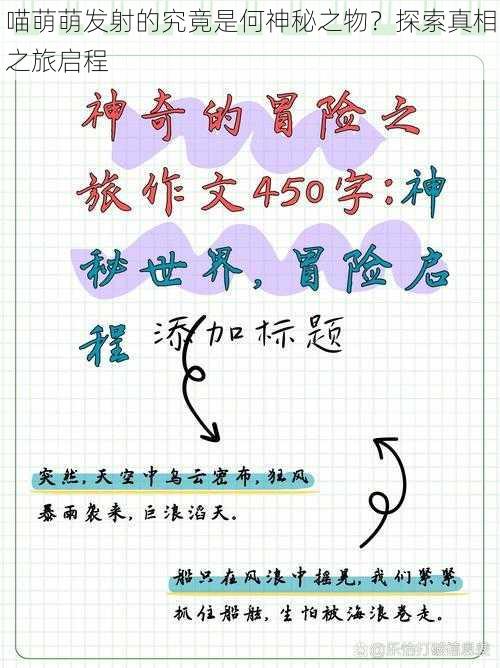 喵萌萌发射的究竟是何神秘之物？探索真相
之旅启程
神奇的冒险之
旅作文450字:神
秘世界,冒险启
程 添加标题
突然,天空中乌云密布,狂风
暴雨袭来,巨浪滔天。
船只在风浪中摇晃,我们紧紧
抓住船舷,生怕被海浪卷走。